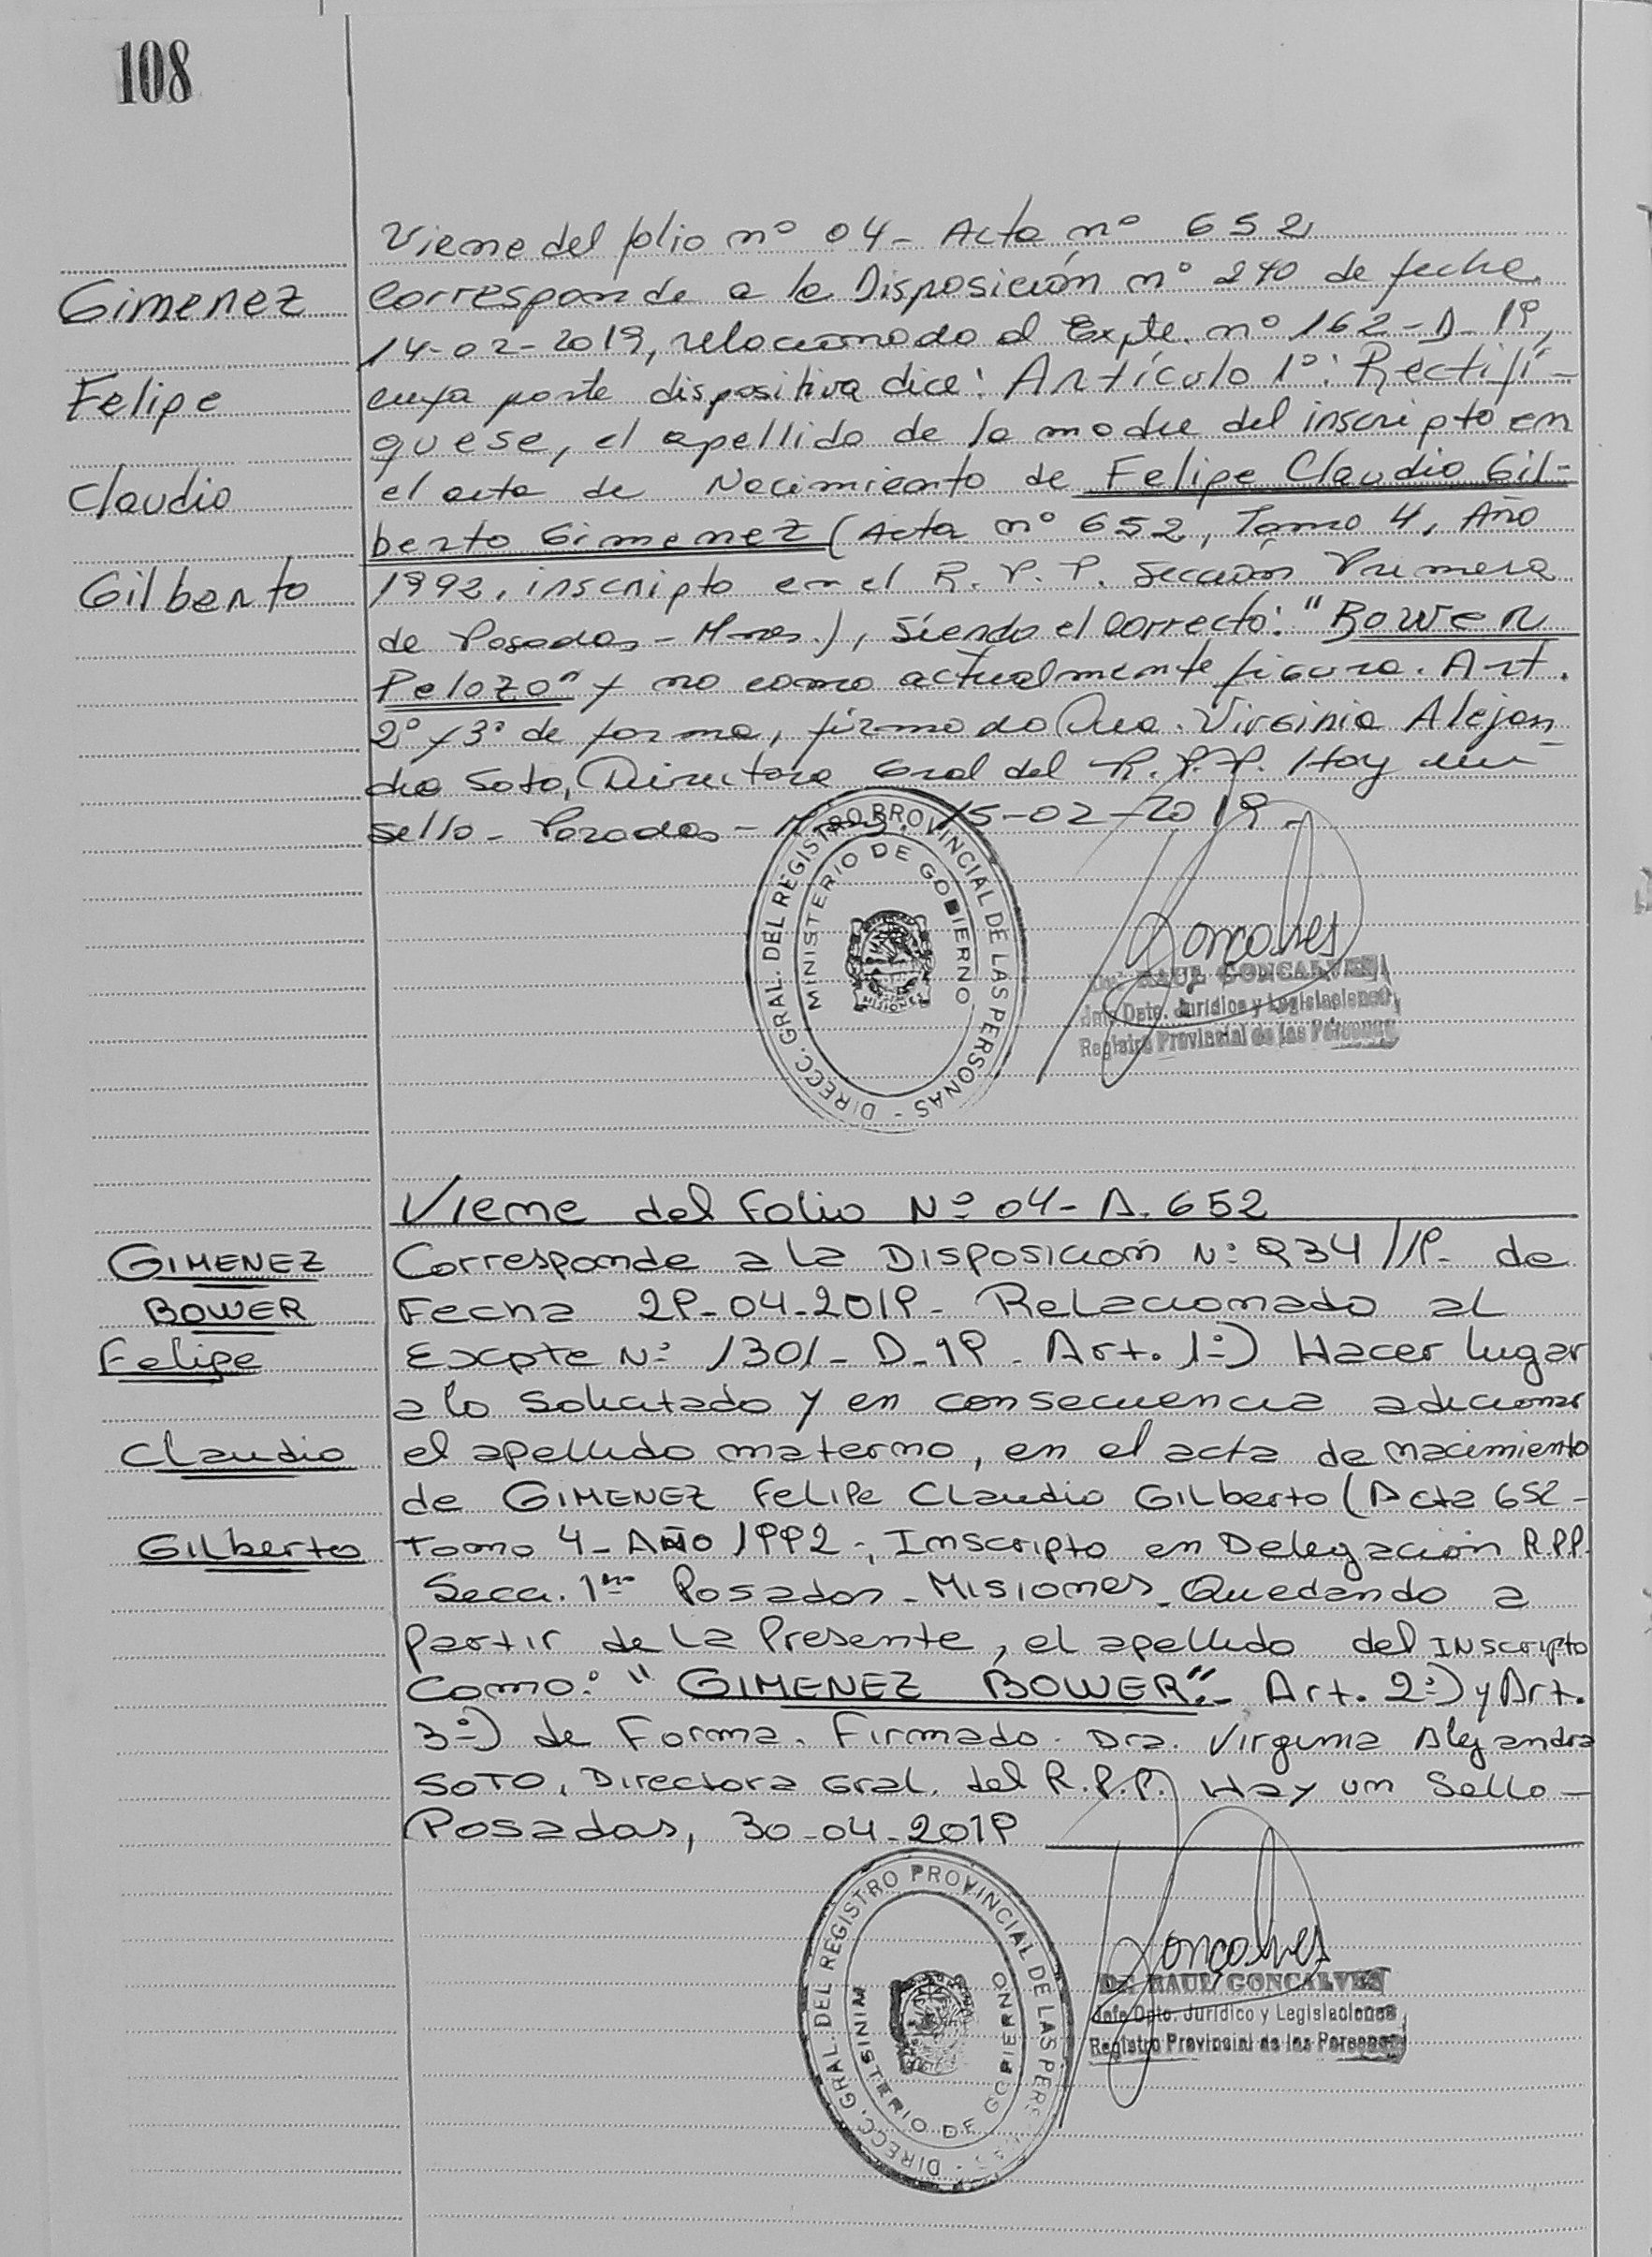 108
Viene del folio nº 04 - Acta nº 652
Gimenez
Corresponde a la Disposición nº 240 de fecha
14-02-2019, relacionado al Expte. nº 162-D-19,
Felipe
cuya parte dispositiva dice: Artículo 1º: Rectifí-
quese, el apellido de la madre del inscripto en
Claudio
el acta de Nacimiento de Felipe Claudio Gil-
berto Gimenez (Acta nº 652, Tomo 4, Año
Gilberto
1992, inscripto en el R.P.P. Sección Primera
de Posadas - Mnes.), Siendo el correcto: "Bower
Pelozo" y no como actualmente figura. Art.
2º y 3º de forma, firmado Dra. Virginia Alejan-
dra Soto, Directora Gral del R.P.P. Hay un
sello - Posadas - Mnes, 15-02-2019.
DIRECC. GRAL. DEL REGISTRO PROVINCIAL DE LAS PERSONAS -
MINISTERIO DE GOBIERNO
MISIONES
Goncalves
RAUL GONCALVES
Jefe Dpto. Jurídico y Legislaciones
Registro Provincial de las Personas
Viene del Folio Nº 04 - A. 652
GIMENEZ
Corresponde a la Disposición Nº 934/19. de
BOWER
Fecha 29-04-2019 - Relacionado al
Felipe
Excpte Nº 1301 - D-19 - Art. 1º) Hacer lugar
a lo Solicitado y en consecuencia adicionar
Claudio
el apellido materno, en el acta de nacimiento
de GIMENEZ Felipe Claudio Gilberto (Acta 652 -
Gilberto
Tomo 4 - Año 1992 -, Inscripto en Delegación R.P.P.
Secc. 1ra Posadas - Misiones. Quedando a
partir de la Presente, el apellido del Inscripto
Como: "GIMENEZ BOWER" - Art. 2º) y Art.
3º) de Forma. Firmado. Dra. Virginia Alejandra
SOTO, Directora Gral. del R.P.P. Hay un Sello -
Posadas, 30-04-2019
DIRECC. GRAL. DEL REGISTRO PROVINCIAL DE LAS PERS
MINISTERIO DE GOBIERNO
Goncalves
Dr. RAUL GONCALVES
Jefe Dpto. Jurídico y Legislaciones
Registro Provincial de las Personas